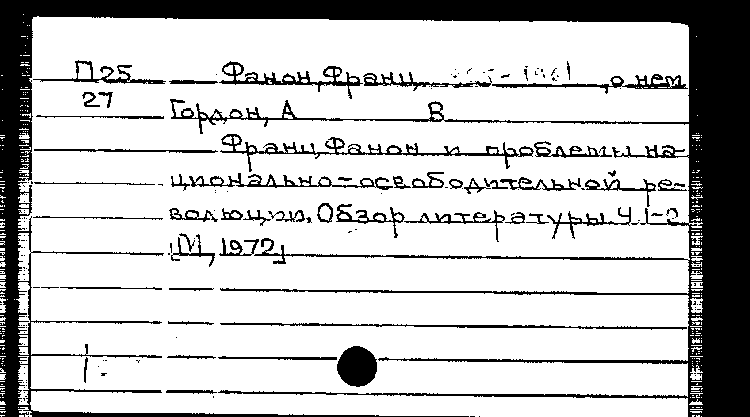 П25 Фанон, Франц, -1961, о нем
27 Гордон, А В
Франц Фанон и проблемы на-
ционально-освободительной ре-
волюции. Обзор литературы Ч 1-2
[М, 1972]
1.